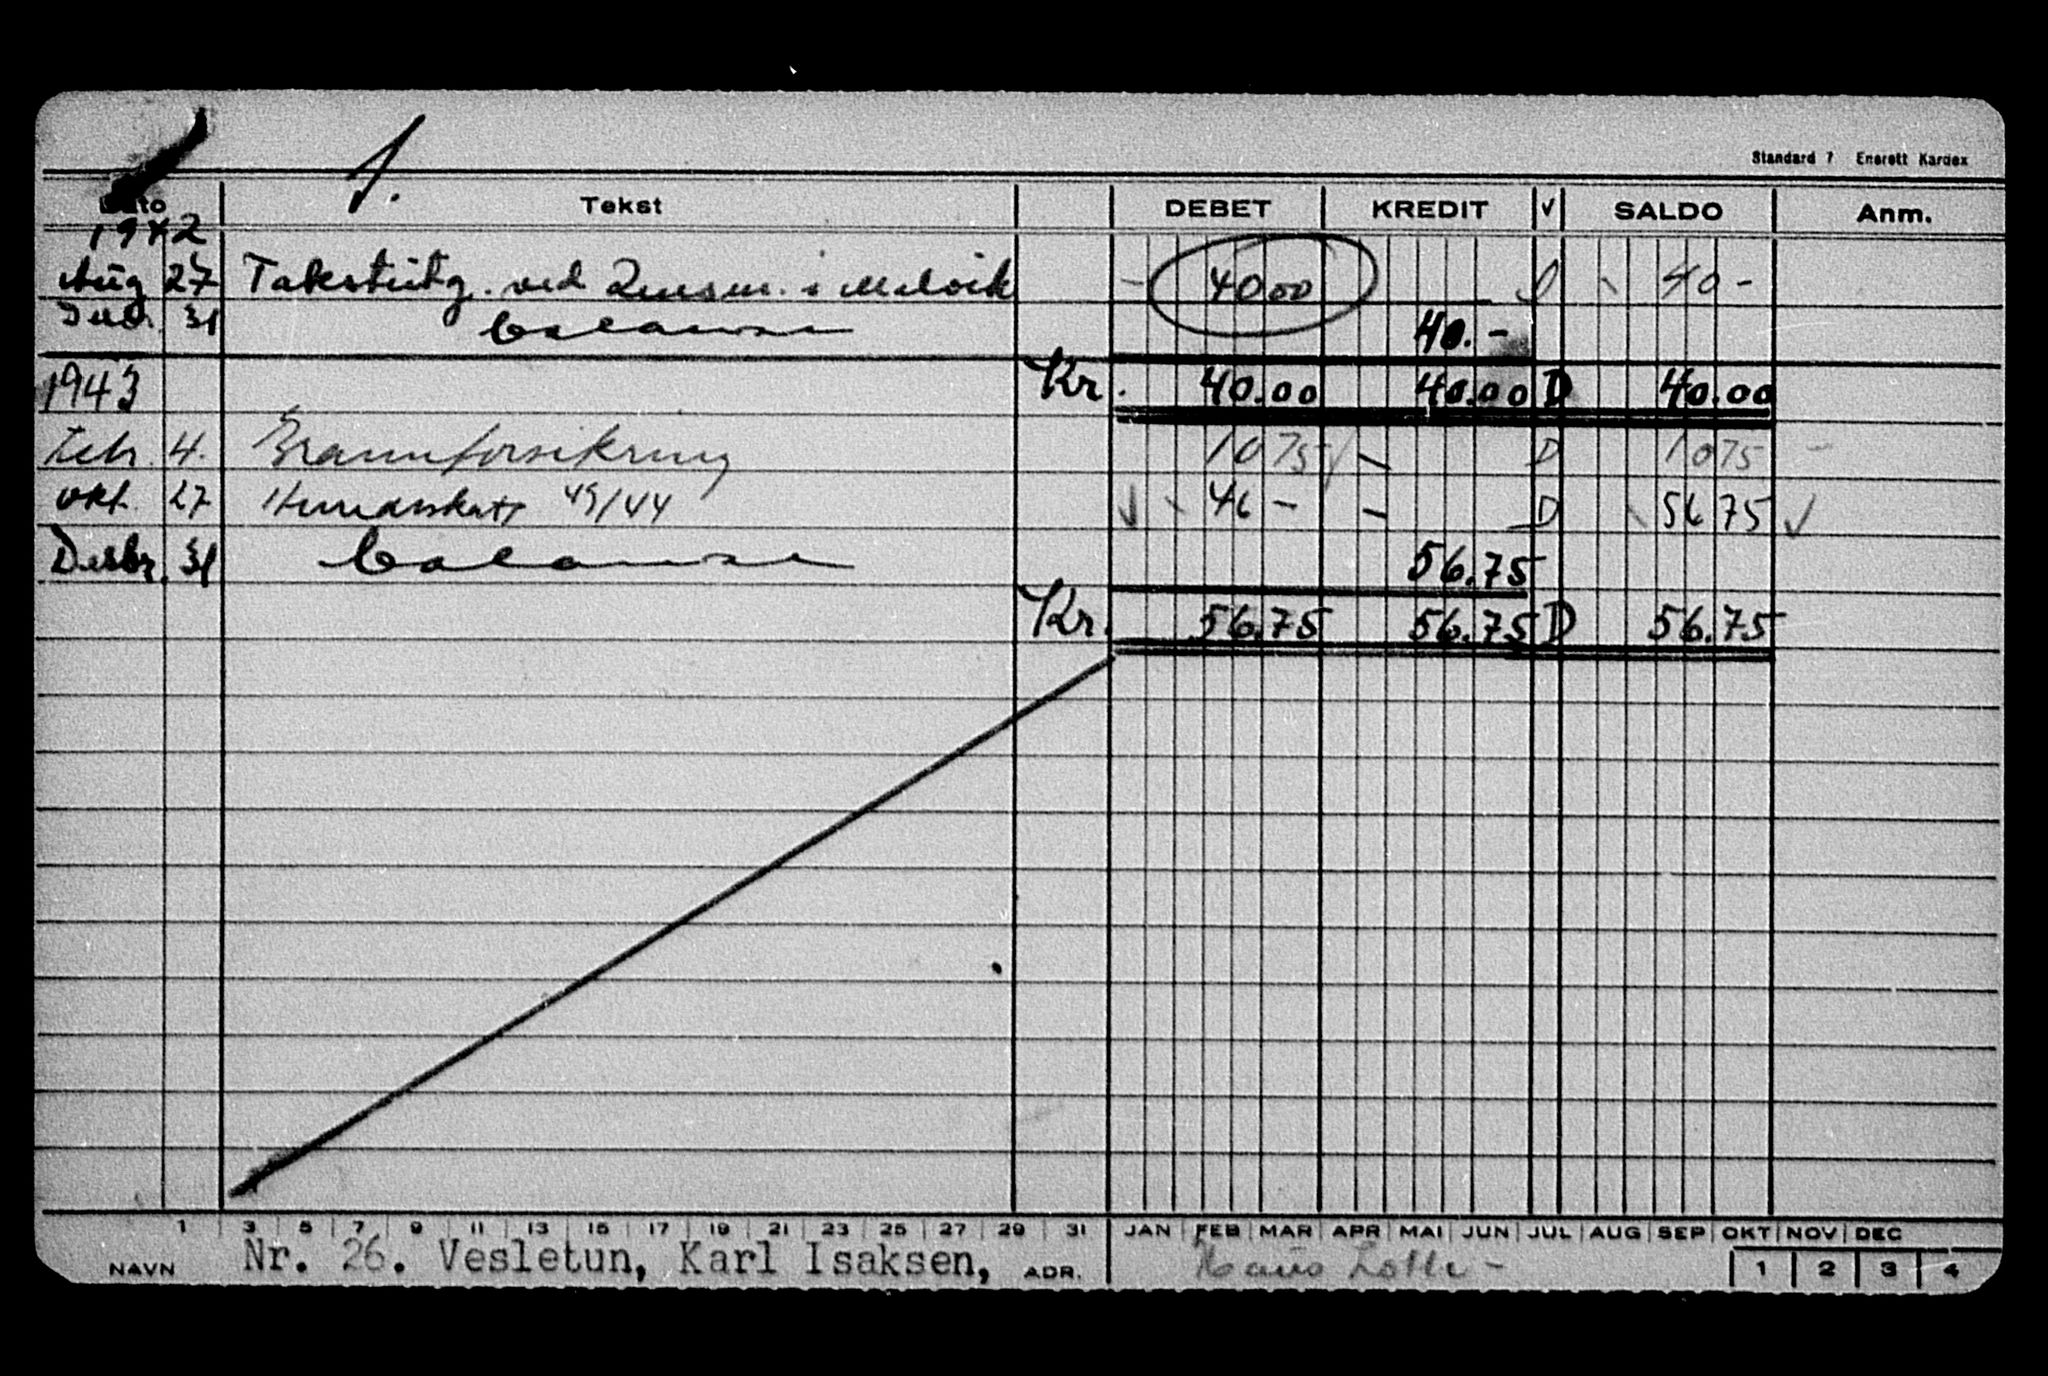 1.
Standard 7 Enerett Kardex
Dato Tekst DEBET KREDIT √ SALDO Anm.
1942
Aug 27 Takstutg. ved Lensm. i Malvik 40 00 D 40 -
Desbr. 31 balanse 40. -
1943 Kr. 40.00 40.00 D 40.00
Febr. 4. Brannforsikring 10 75 - D 10 75 -
Okt. 27 46 - - D 56 75 √
Desbr. 31 balanse 56.75
Kr. 56.75 56.75 D 56.75
1 3 5 7 9 11 13 15 17 19 21 23 25 27 29 31 JAN FEB MAR APR MAI JUN JUL AUG SEP OKT NOV DEC
NAVN Nr. 26. Vesletun, Karl Isaksen, ADR. Hans 1 2 3 4